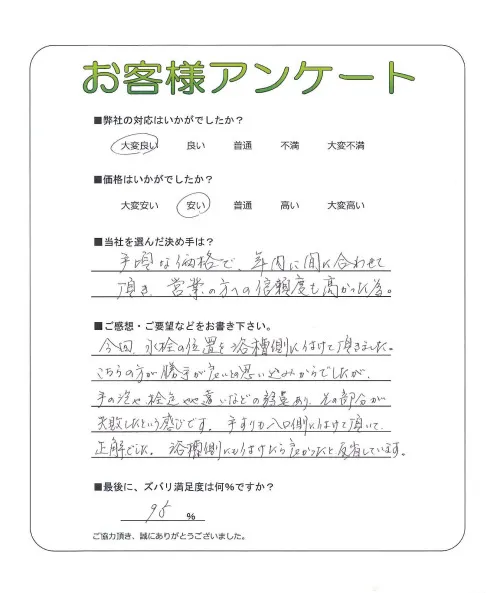 お客様アンケート
■弊社の対応はいかがでしたか？
大変良い 良い 普通 不満 大変不満
■価格はいかがでしたか？
大変安い 安い 普通 高い 大変高い
■当社を選んだ決め手は？
手頃な価格で、年内に間に合わせて
頂き、営業の方への信頼度も高かった為。
■ご感想・ご要望などをお書き下さい。
今回、水栓の位置を浴槽側に付けて頂きました。
こちらの方が勝手が良いとの思い込みからでしたが、
手の泡や などの あり、その部分が
失敗したという感じです。手すりも入口側に付けて頂いて、
正解でした。浴槽側にも付けたら良かったと反省しています。
■最後に、ズバリ満足度は何％ですか？
95 ％
ご協力頂き、誠にありがとうございました。